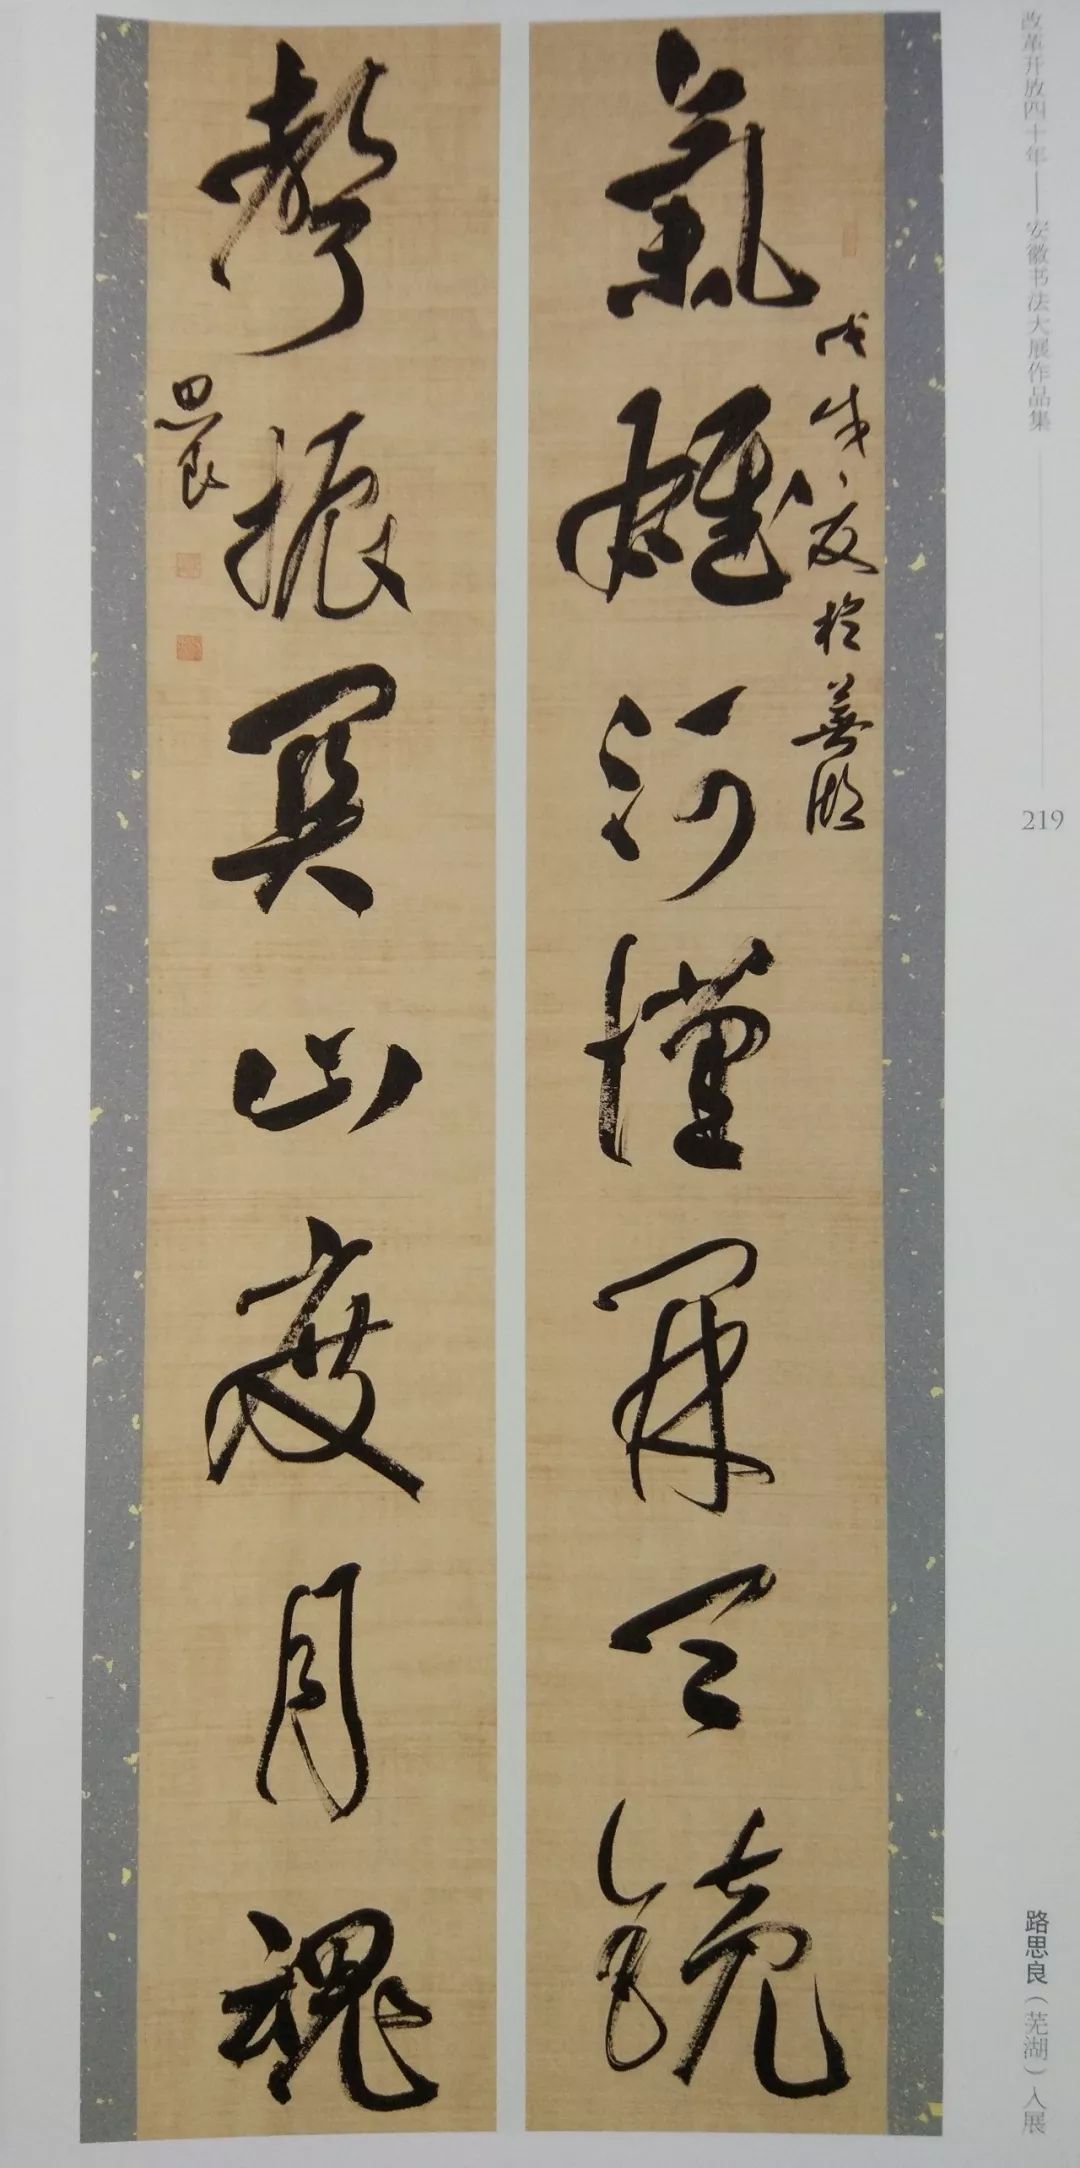 改革开放四十年——安徽书法大展作品集
219
路思良（芜湖）入展
氣雄河漢開天鏡
戊戌之夏於蕪湖
聲振關山度月魂
思良